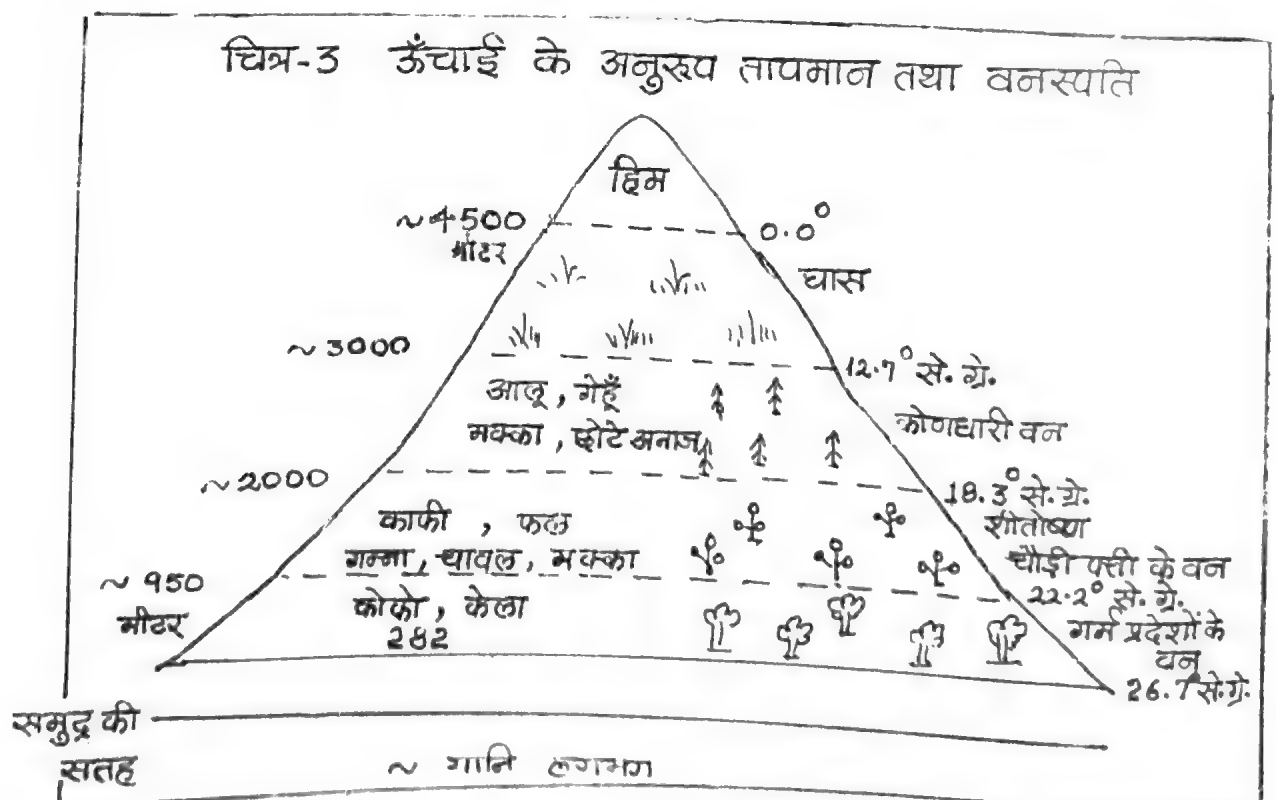 चित्र-3 ऊँचाई के अनुरूप तापमान तथा वनस्पति
हिम
~4500
मीटर
0.0°
घास
~3000
12.7° से. ग्रे.
आलू, गेहूँ
मक्का, छोटे अनाज
कोणधारी वन
~2000
18.3° से. ग्रे.
काफी, फल
शीतोष्ण
गन्ना, चावल, मक्का
चौड़ी पत्ती के वन
~950
मीटर
22.2° से. ग्रे.
कोको, केला
282
गर्म प्रदेशों के
वन
26.7° से. ग्रे.
समुद्र की
सतह
~ यानि लगभग